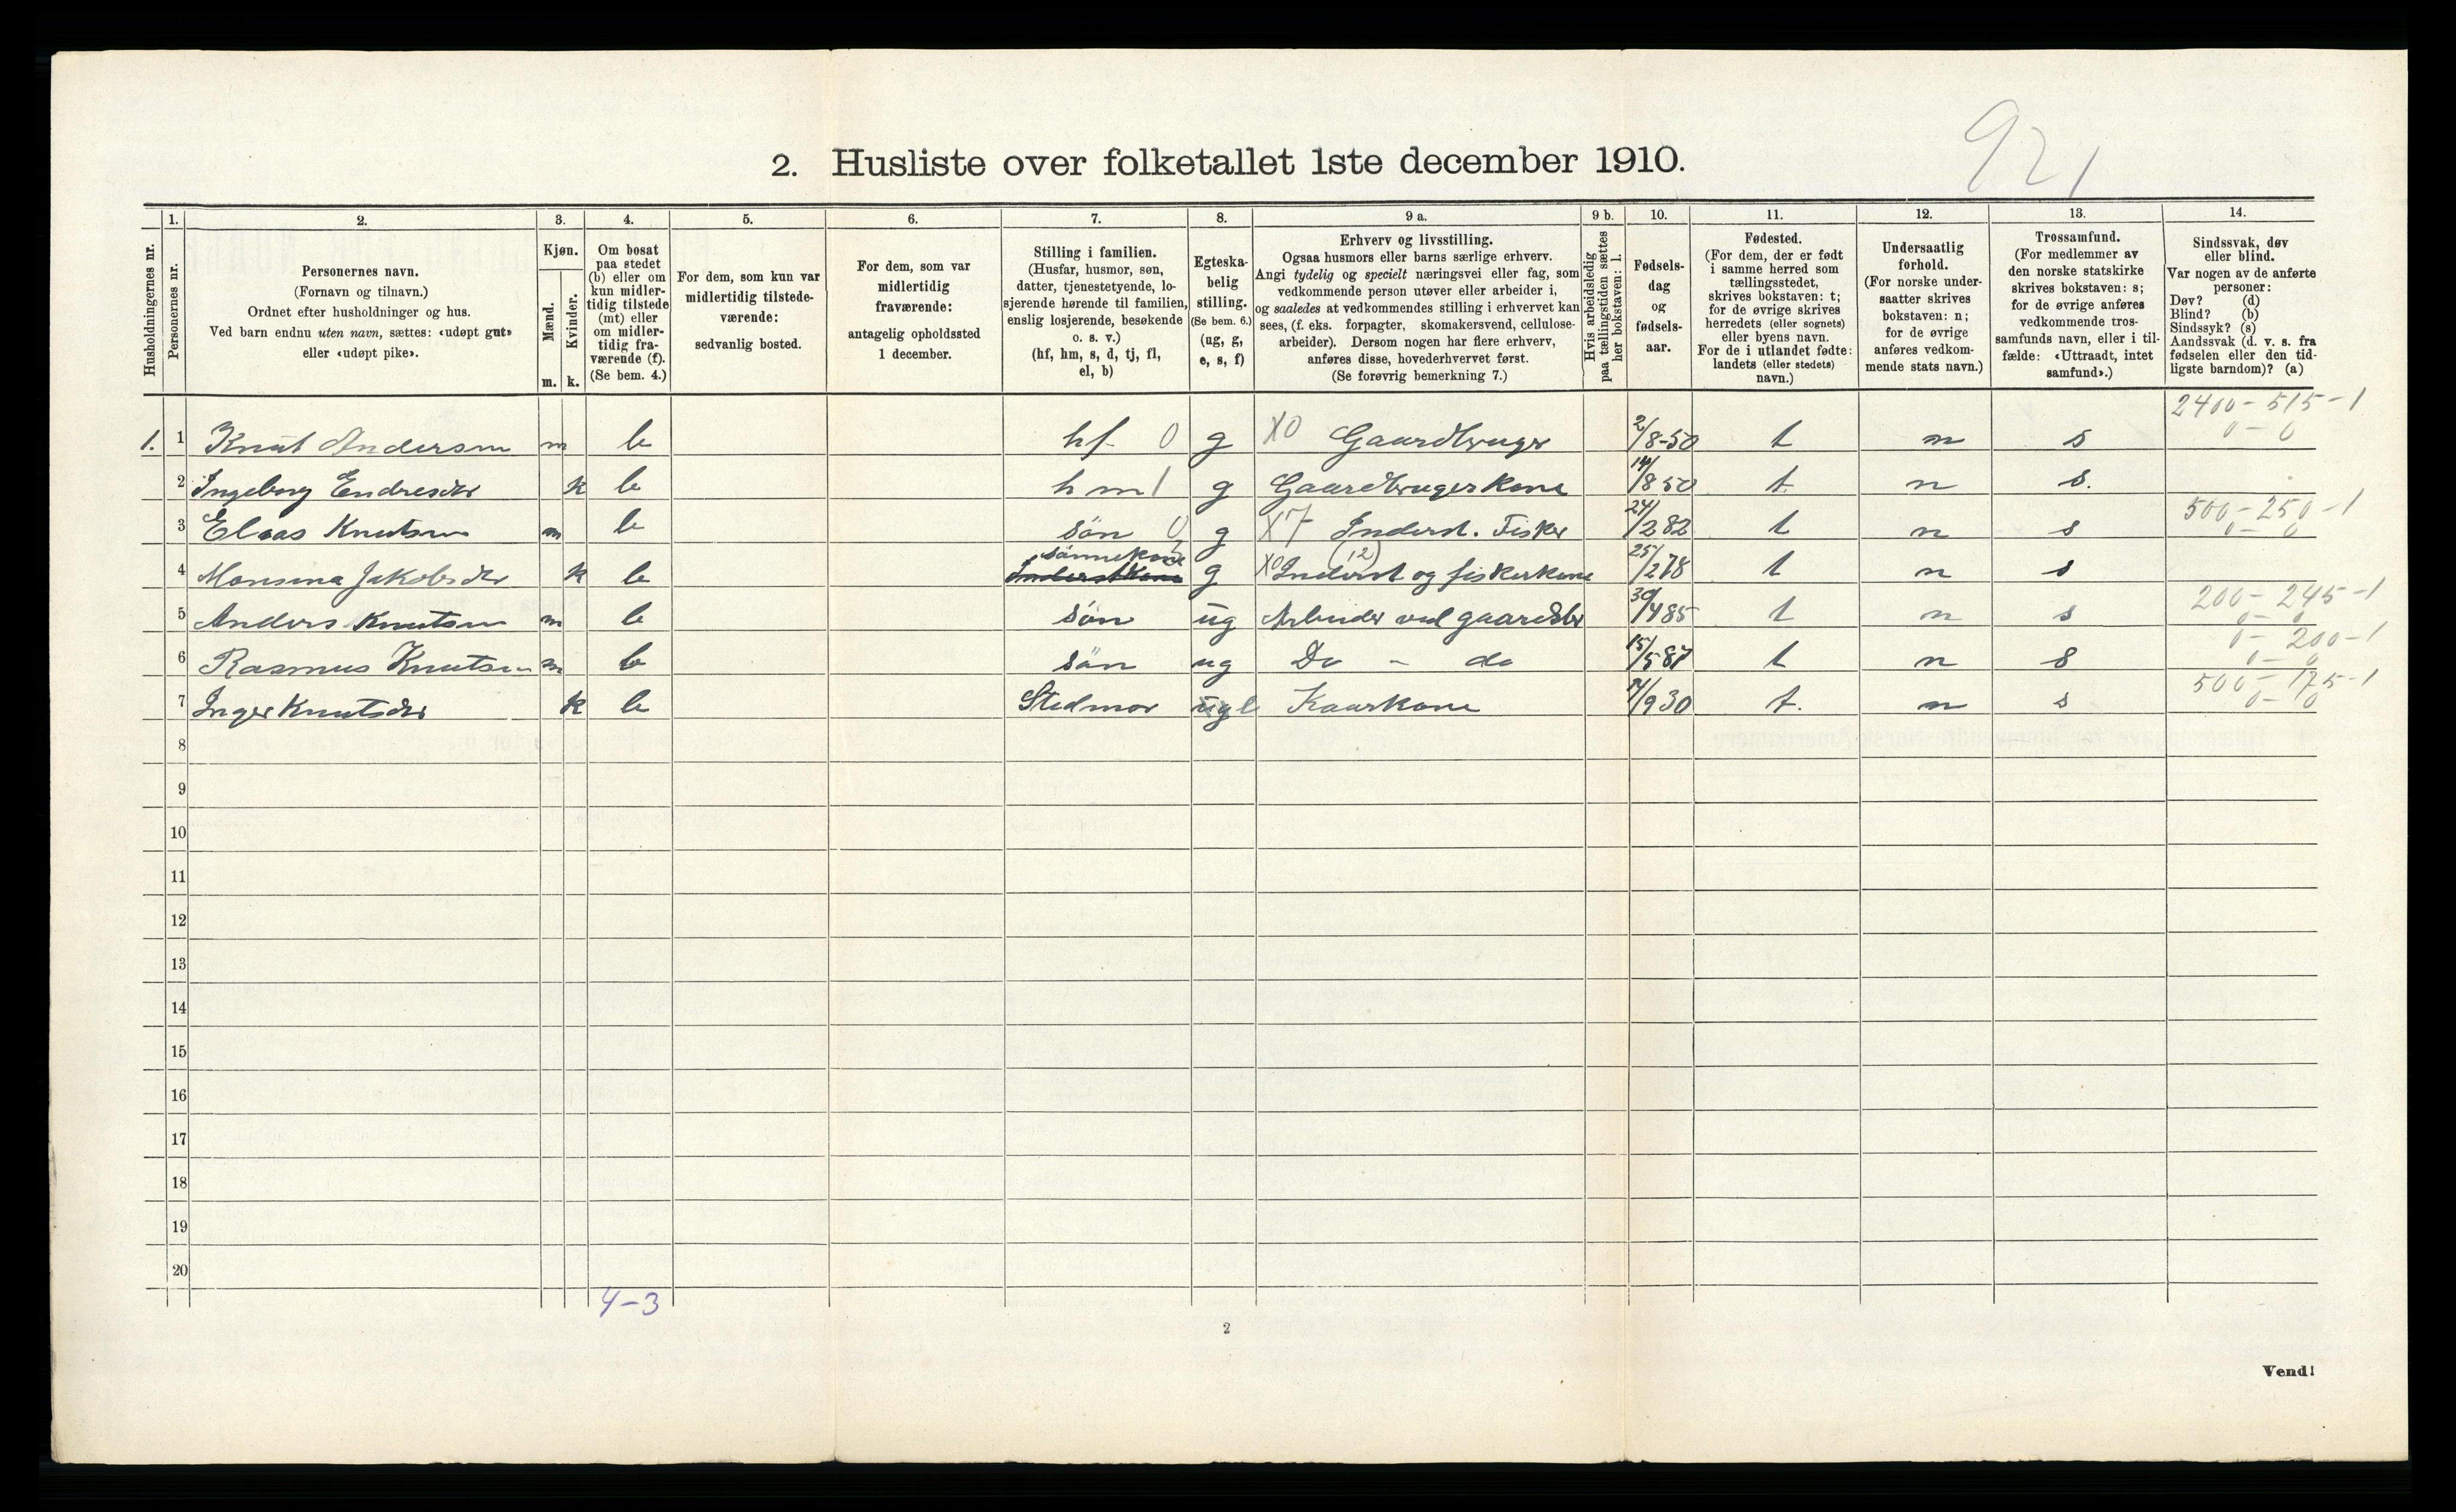 921
2. Husliste over folketallet 1ste december 1910.
1. 2. 3. 4. 5. 6. 7. 8. 9 a. 9 b. 10. 11. 12. 13. 14.
Husholdningernes nr.
Personernes nr.
Personernes navn.
(Fornavn og tilnavn.)
Ordnet efter husholdninger og hus.
Ved barn endnu uten navn, sættes: «udøpt gut»
eller «udøpt pike».
Kjøn.
Mænd.
Kvinder.
m. k.
Om bosat
paa stedet
(b) eller om
kun midler-
tidig tilstede
(mt) eller
om midler-
tidig fra-
værende (f).
(Se bem. 4.)
For dem, som kun var
midlertidig tilstede-
værende:
sedvanlig bosted.
For dem, som var
midlertidig
fraværende:
antagelig opholdssted
1 december.
Stilling i familien.
(Husfar, husmor, søn,
datter, tjenestetyende, lo-
sjerende hørende til familien,
enslig losjerende, besøkende
o. s. v.)
(hf, hm, s, d, tj, fl,
el, b)
Egteska-
belig
stilling.
(Se bem. 6.)
(ug, g,
e, s, f)
Erhverv og livsstilling.
Ogsaa husmors eller barns særlige erhverv.
Angi tydelig og specielt næringsvei eller fag, som
vedkommende person utøver eller arbeider i,
og saaledes at vedkommendes stilling i erhvervet kan
sees, (f. eks. forpagter, skomakersvend, cellulose-
arbeider). Dersom nogen har flere erhverv,
anføres disse, hovederhvervet først.
(Se forøvrig bemerkning 7.)
Hvis arbeidsledig
paa tællingstiden sættes
her bokstaven: l.
Fødsels-
dag
og
fødsels-
aar.
Fødested.
(For dem, der er født
i samme herred som
tællingsstedet,
skrives bokstaven: t;
for de øvrige skrives
herredets (eller sognets)
eller byens navn.
For de i utlandet fødte:
landets (eller stedets)
navn.)
Undersaatlig
forhold.
(For norske under-
saatter skrives
bokstaven: n;
for de øvrige
anføres vedkom-
mende stats navn.)
Trossamfund.
(For medlemmer av
den norske statskirke
skrives bokstaven: s;
for de øvrige anføres
vedkommende tros-
samfunds navn, eller i til-
fælde: «Uttraadt, intet
samfund».)
Sindssvak, døv
eller blind.
Var nogen av de anførte
personer:
Døv? (d)
Blind? (b)
Sindssyk? (s)
Aandssvak (d. v. s. fra
fødselen eller den tid-
ligste barndom)? (a)
2400 - 515 - 1
1. 1 Knut Andersen m b hf 0 g X0 Gaardbruger 2/8-50 t n s 0 - 0
2 Ingeborg Endresdtr k b hm 1 g Gaardbrugerkone 14/8 50 t. n s.
500 - 250 - 1
3 Elias Knutsen m b søn 0 g X7 Inderst. Fisker 24/2 82 t n s 0 - 0
sønnekone (12)
4 Monsina Jakobsdtr k b Inderstkone g X0 Inderst og fiskerkone 25/2 78 t n s
200 - 245 - 1
5 Anders Knutsen m b søn ug Arbeider ved gaardsbr 30/4 85 t n s 0 - 0
0 - 200 - 1
6 Rasmus Knutsen m b søn ug Do - do 15/5 87 t n s 0 - 0
500 - 175 - 1
7 Inger Knutsdtr k b Stedmor ug e Kaarkone 7/9 30 t. n s 0 - 0
8
9
10
11
12
13
14
15
16
17
18
19
20
4-3
2
Vend!